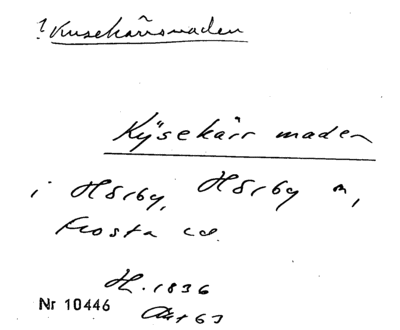 ? Kusekärrsmaden
Kysekärr maden
i Hörby, Hörby m,
Frosta
H. 1836
Akt 63
Nr 10446